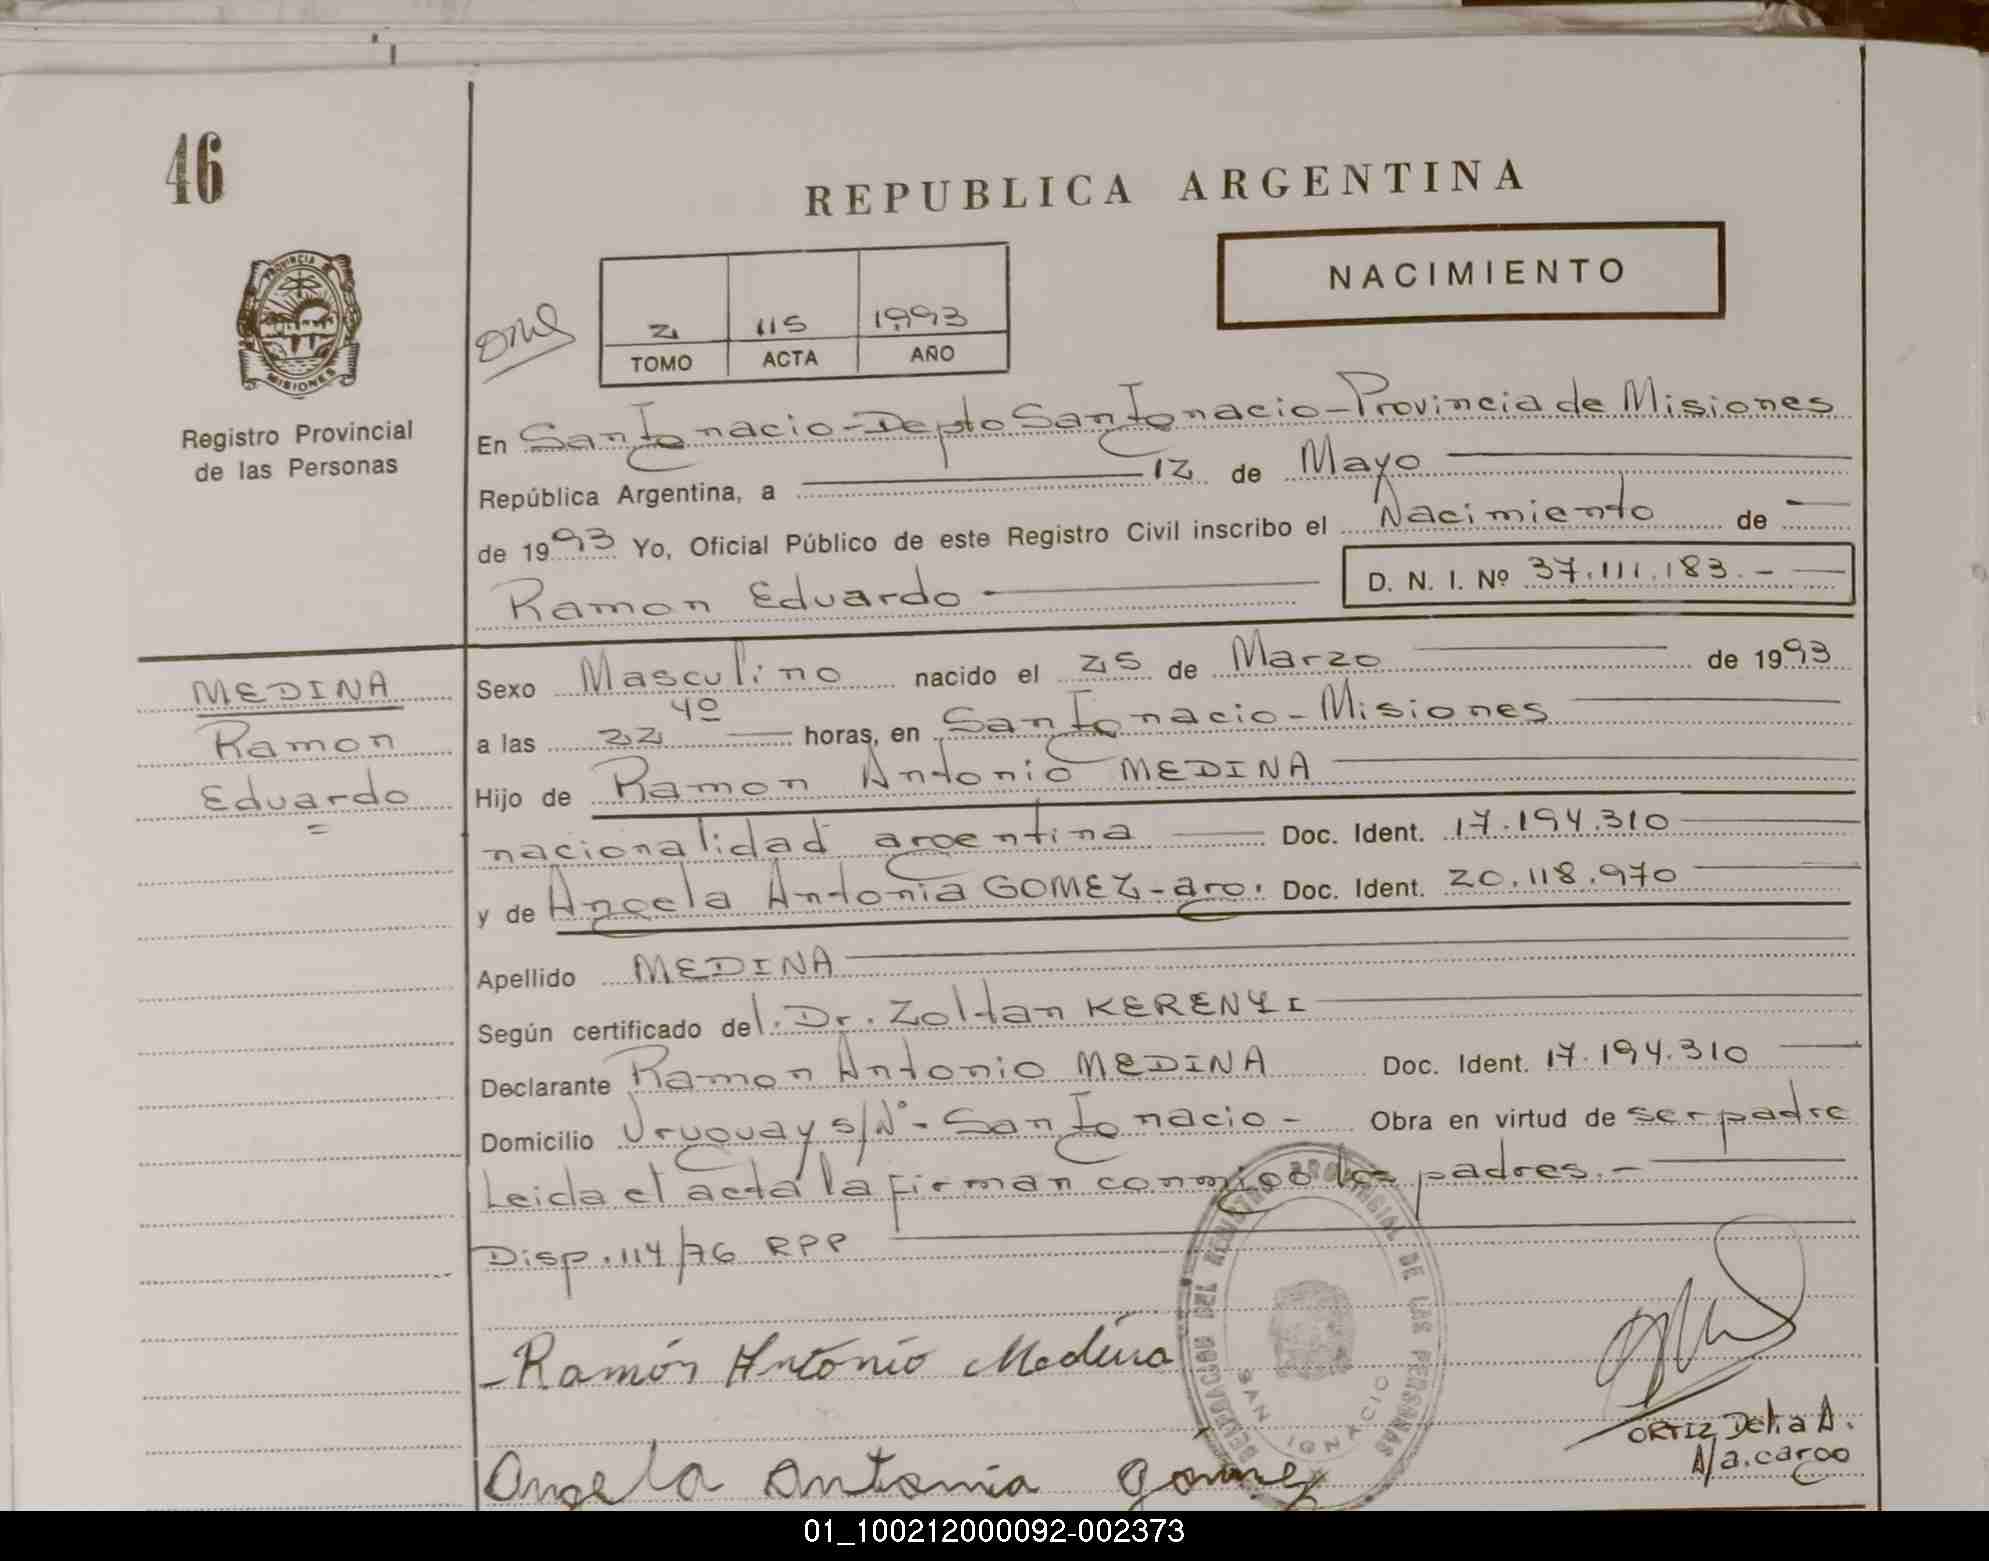 46
REPUBLICA ARGENTINA
PROVINCIA DE
MISIONES
NACIMIENTO
2 115 1993
TOMO ACTA AÑO
Registro Provincial
de las Personas
En San Ignacio - Depto San Ignacio - Provincia de Misiones
República Argentina, a 12 de Mayo
de 1993 Yo, Oficial Público de este Registro Civil inscribo el Nacimiento de
Ramon Eduardo D. N. I. Nº 37.111.183.-
MEDINA
Ramon
Eduardo
Sexo Masculino nacido el 25 de Marzo de 1993
a las 22 40 horas, en San Ignacio - Misiones
Hijo de Ramon Antonio MEDINA
nacionalidad argentina Doc. Ident. 17.194.310
y de Angela Antonia GOMEZ - arg. Doc. Ident. 20.118.970
Apellido MEDINA
Según certificado del. Dr. Zoltan KERENYI
Declarante Ramon Antonio MEDINA Doc. Ident. 17.194.310
Domicilio Uruguay s/Nº - San Ignacio - Obra en virtud de ser padre
Leida el acta la firman conmigo los padres.-
Disp. 114/76 RPP
DELEGACION DEL REGISTRO PROVINCIAL DE LAS PERSONAS
SAN IGNACIO
Ramón Antonio Medina
ORTIZ Delia A.
A/a. cargo
Angela Antonia Gomez
01_100212000092-002373